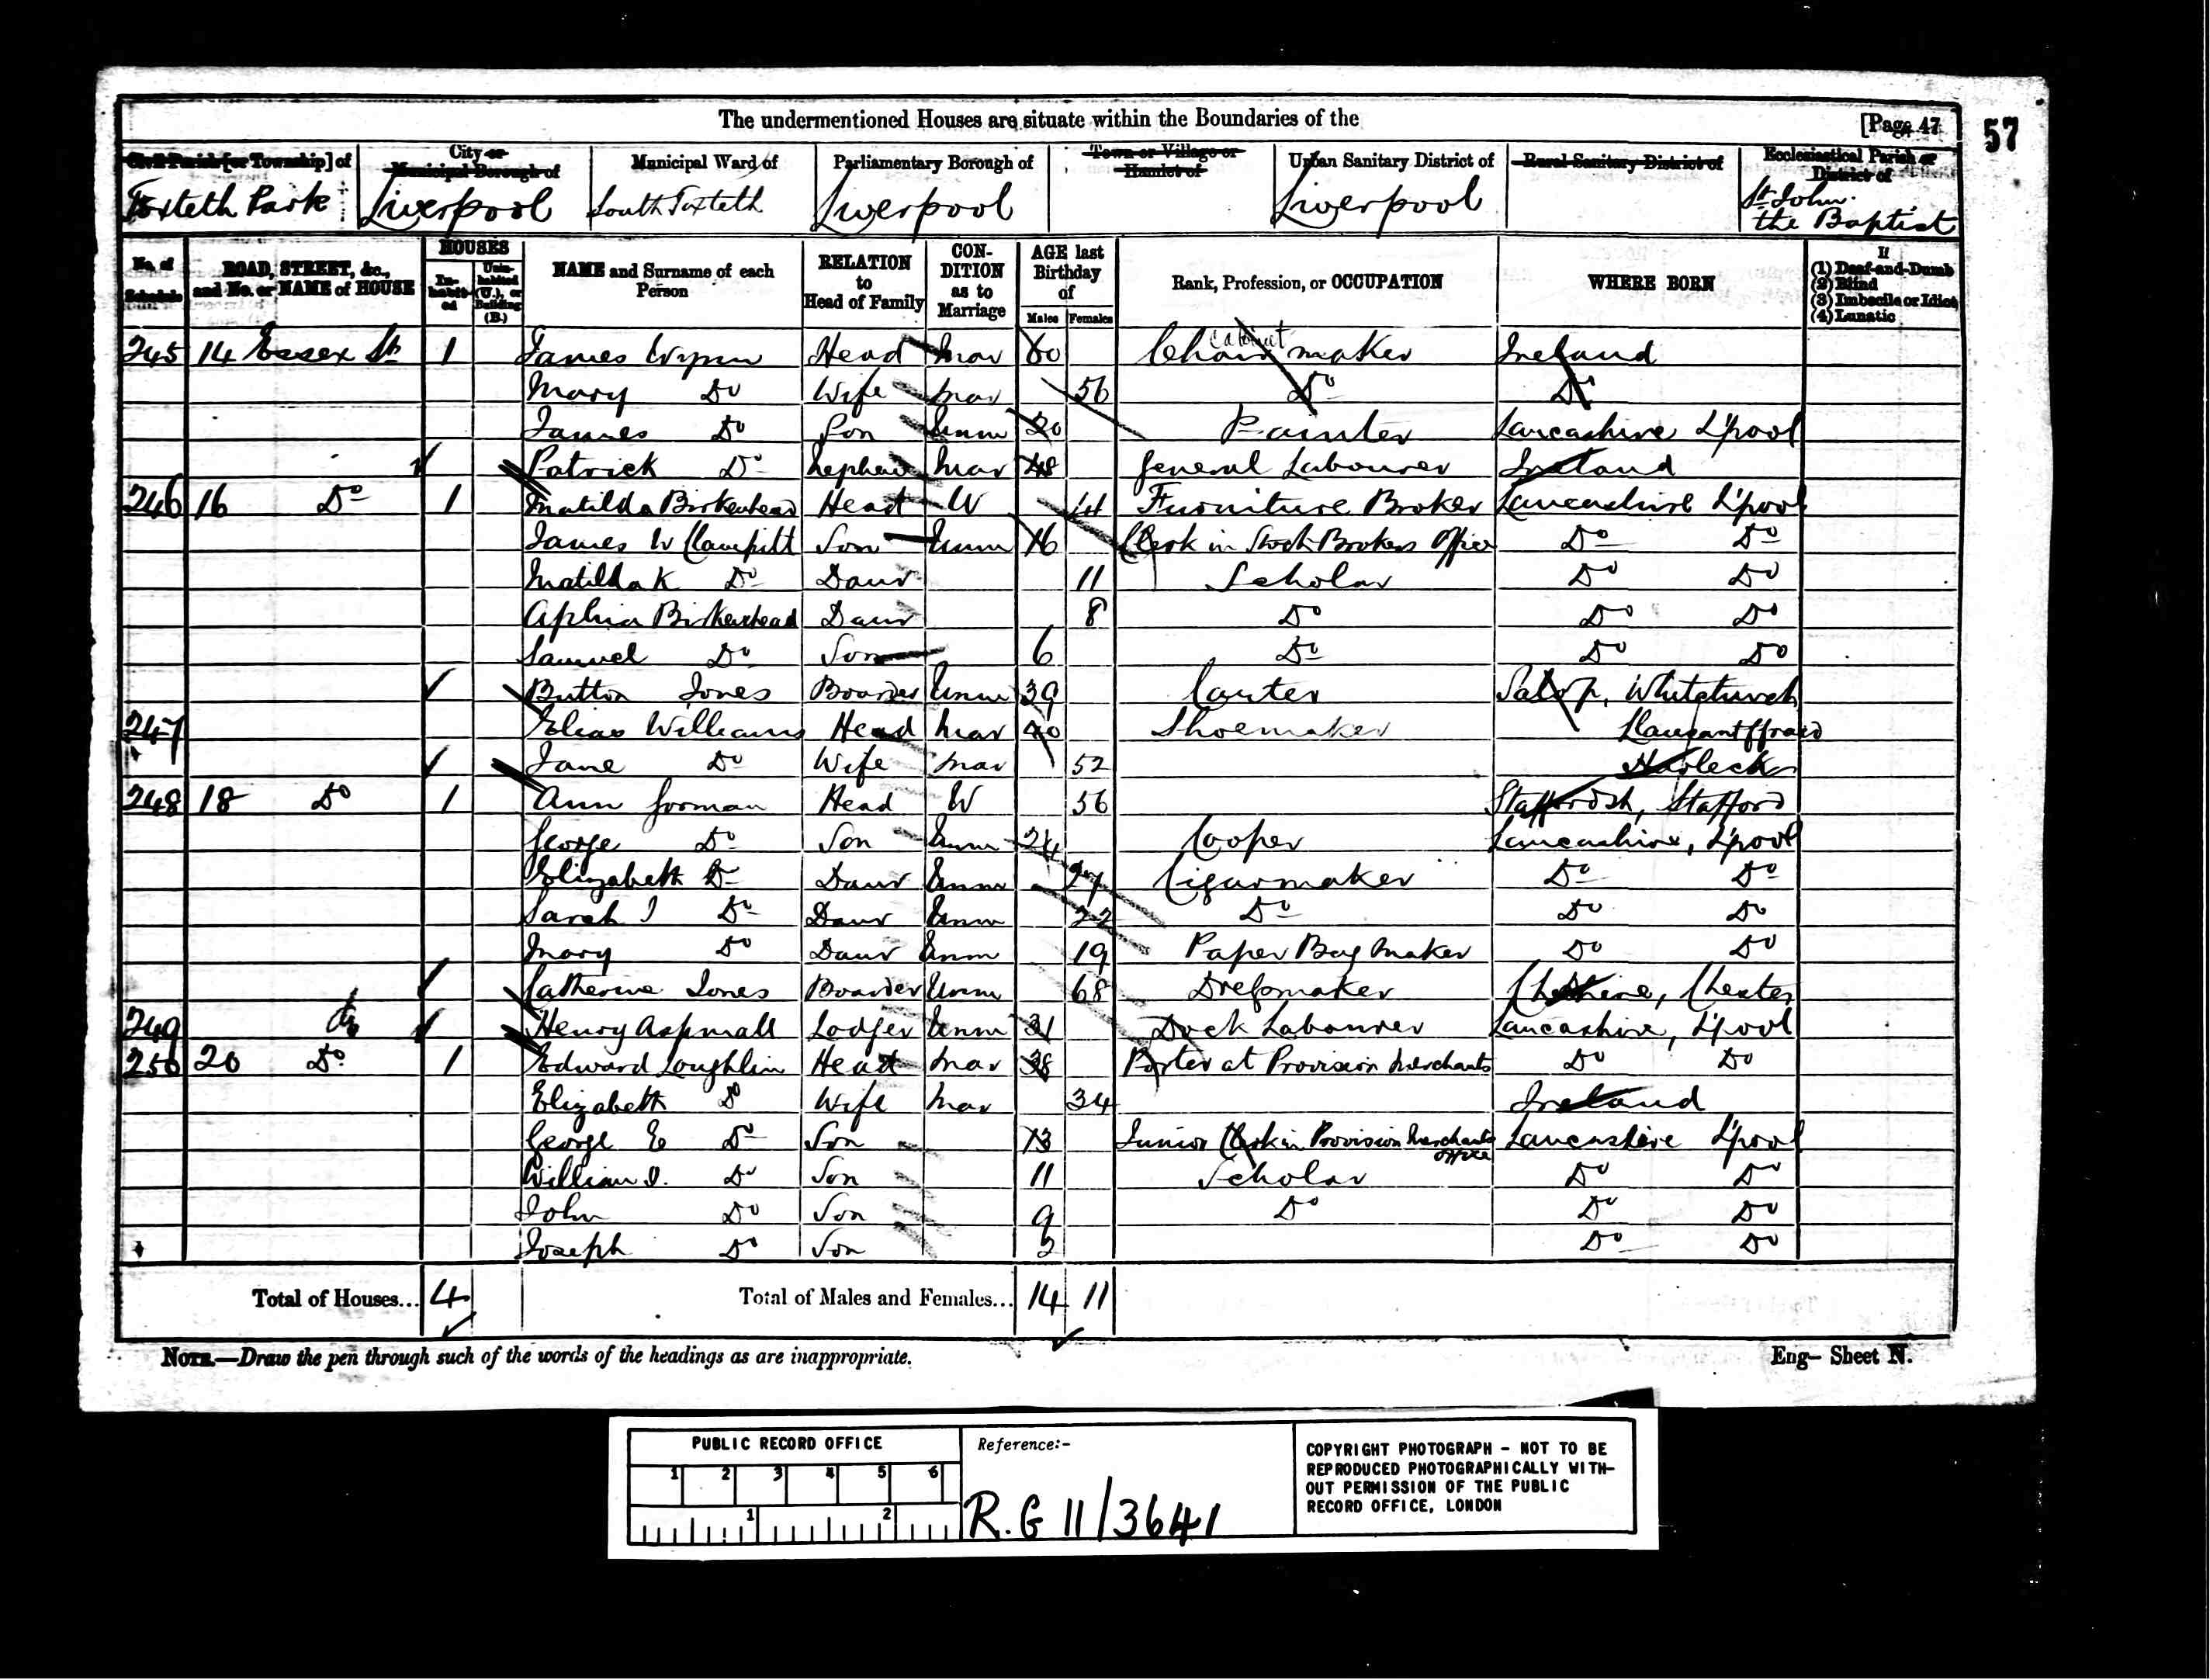 The undermentioned Houses are situate within the Boundaries of the [Page 47 57
Civil Parish [or Township] of City or Municipal Borough of Municipal Ward of Parliamentary Borough of Town or Village or Hamlet of Urban Sanitary District of Rural Sanitary District of Ecclesiastical Parish or District of
Toxteth Park Liverpool South Toxteth Liverpool Liverpool St John the Baptist
No. of Schedule ROAD, STREET, &c., and No. or NAME of HOUSE HOUSES Inhabited Uninhabited (U.), or Building (B.) NAME and Surname of each Person RELATION to Head of Family CONDITION as to Marriage AGE last Birthday of Males Females Rank, Profession, or OCCUPATION WHERE BORN If (1) Deaf-and-Dumb (2) Blind (3) Imbecile or Idiot (4) Lunatic
245 14 Essex St 1 James Wynn Head Mar 60 Chair Cabinet maker Ireland
Mary Do Wife Mar 56 Do Do
James Do Son Unm 20 Painter Lancashire L'pool
Patrick Do Nephew Mar 48 General Labourer Ireland
246 16 Do 1 Matilda Birkenhead Head W Furniture Broker Lancashire L'pool
James W Clampitt Son Unm 16 Clerk in Stock Brokers Office Do Do
Matilda K Do Daur 11 Scholar Do Do
Aphia Birkenhead Daur 8 Do Do Do
Samuel Do Son 6 Do Do Do
Button Jones Boarder Unm 39 Carter Salop, Whitchurch
247 Elias Williams Head Mar 40 Shoemaker Llansantffraid
Jane Do Wife Mar 52 Harleck
248 18 Do 1 Ann Gorman Head W 56 Staffordsh, Stafford
George Do Son Unm 24 Cooper Lancashire, L'pool
Elizabeth Do Daur Unm Cigarmaker Do Do
Sarah J Do Daur Unm 22 Do Do Do
Mary Do Daur Unm 19 Paper Bag Maker Do Do
Catherine Jones Boarder Unm 68 Dressmaker Cheshire, Chester
249 Do Henry Aspinall Lodger Unm 31 Dock Labourer Lancashire, L'pool
250 20 Do 1 Edward Loughlin Head Mar 38 Porter at Provision Merchants Do Do
Elizabeth Do Wife Mar 34 Ireland
George E Do Son 13 Junior Clerk in Provision Merchants Office Lancashire L'pool
William J. Do Son 11 Scholar Do Do
John Do Son 9 Do Do Do
Joseph Do Son Do Do
Total of Houses... 4 Total of Males and Females... 14 11
NOTE.—Draw the pen through such of the words of the headings as are inappropriate. Eng- Sheet N.
PUBLIC RECORD OFFICE
1 2 3 4 5 6
1 2
Reference:-
R.G 11/3641
COPYRIGHT PHOTOGRAPH - NOT TO BE
REPRODUCED PHOTOGRAPHICALLY WITH-
OUT PERMISSION OF THE PUBLIC
RECORD OFFICE, LONDON